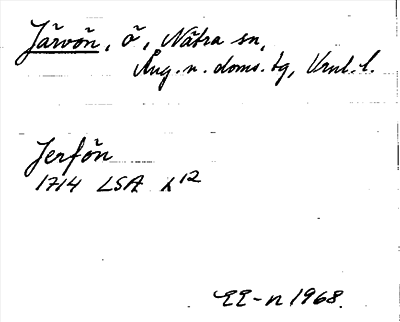 Järvön, ö, Nätra sn,
Ång. n. doms. tg, Vrnl. l.
Jerfön
1714 LSA h12
EE-n 1968.